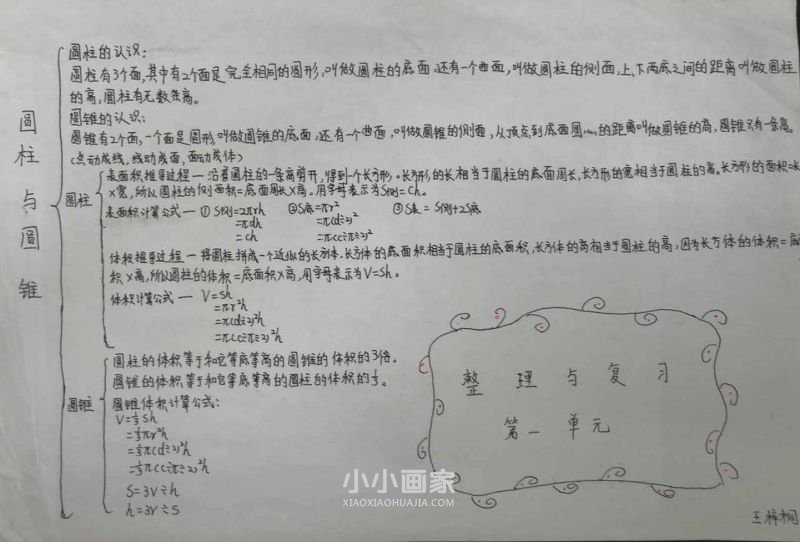 圆柱与圆锥
圆柱的认识:
圆柱有3个面,其中有2个面是完全相同的圆形,叫做圆柱的底面,还有一个曲面,叫做圆柱的侧面,上、下两底之间的距离叫做圆柱
的高,圆柱有无数条高。
圆锥的认识:
圆锥有2个面,一个面是圆形,叫做圆锥的底面,还有一个曲面,叫做圆锥的侧面,从顶点到底面圆心的距离叫做圆锥的高,圆锥只有一条高。
(点动成线,线动成面,面动成体)
圆柱
表面积推导过程—沿着圆柱的一条高剪开,得到一个长方形。长方形的长相当于圆柱的底面周长,长方形的宽相当于圆柱的高。长方形的面积=长
×宽,所以圆柱的侧面积=底面周长×高。用字母表示为S侧=Ch。
表面积计算公式— ①S侧=2πrh ②S底=πr² ③S表=S侧+2S底
=πdh =π(d÷2)²
=ch =π(c÷π÷2)²
体积推导过程—将圆柱拼成一个近似的长方体,长方体的底面积相当于圆柱的底面积,长方体的高相当于圆柱的高,因为长方体的体积=底
积×高,所以圆柱的体积=底面积×高,用字母表示为V=Sh。
体积计算公式— V=Sh
=πr²h
=π(d÷2)²h
=π(c÷π÷2)²h
圆锥
圆柱的体积等于和它等底等高的圆锥的体积的3倍。
圆锥的体积等于和它等底等高的圆柱的体积的⅓。
圆锥体积计算公式:
V=⅓Sh
=⅓πr²h
=⅓π(d÷2)²h
=⅓π(c÷π÷2)²h
S=3V÷h
h=3V÷S
整理与复习
第一单元
小小画家
XIAOXIAOHUAJIA.COM
王梓桐